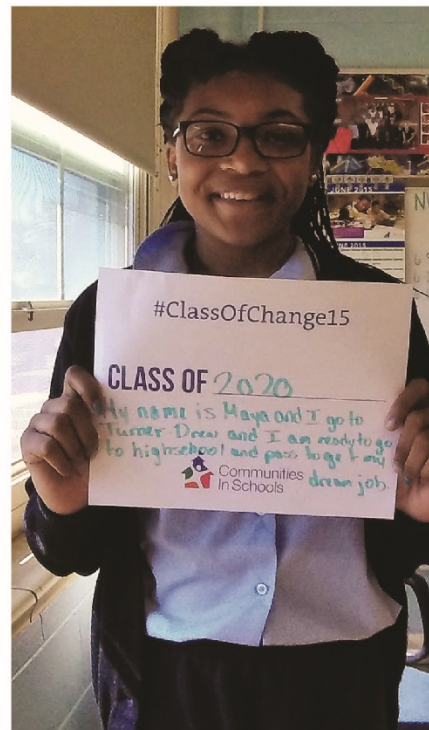 #ClassOfChange15
CLASS OF 2020
My name is Maya and I go to
Turner Drew and I am ready to go
to highschool and pass to get my
dream job.
Communities
In Schools
JUNE 2015
JUNE 2015